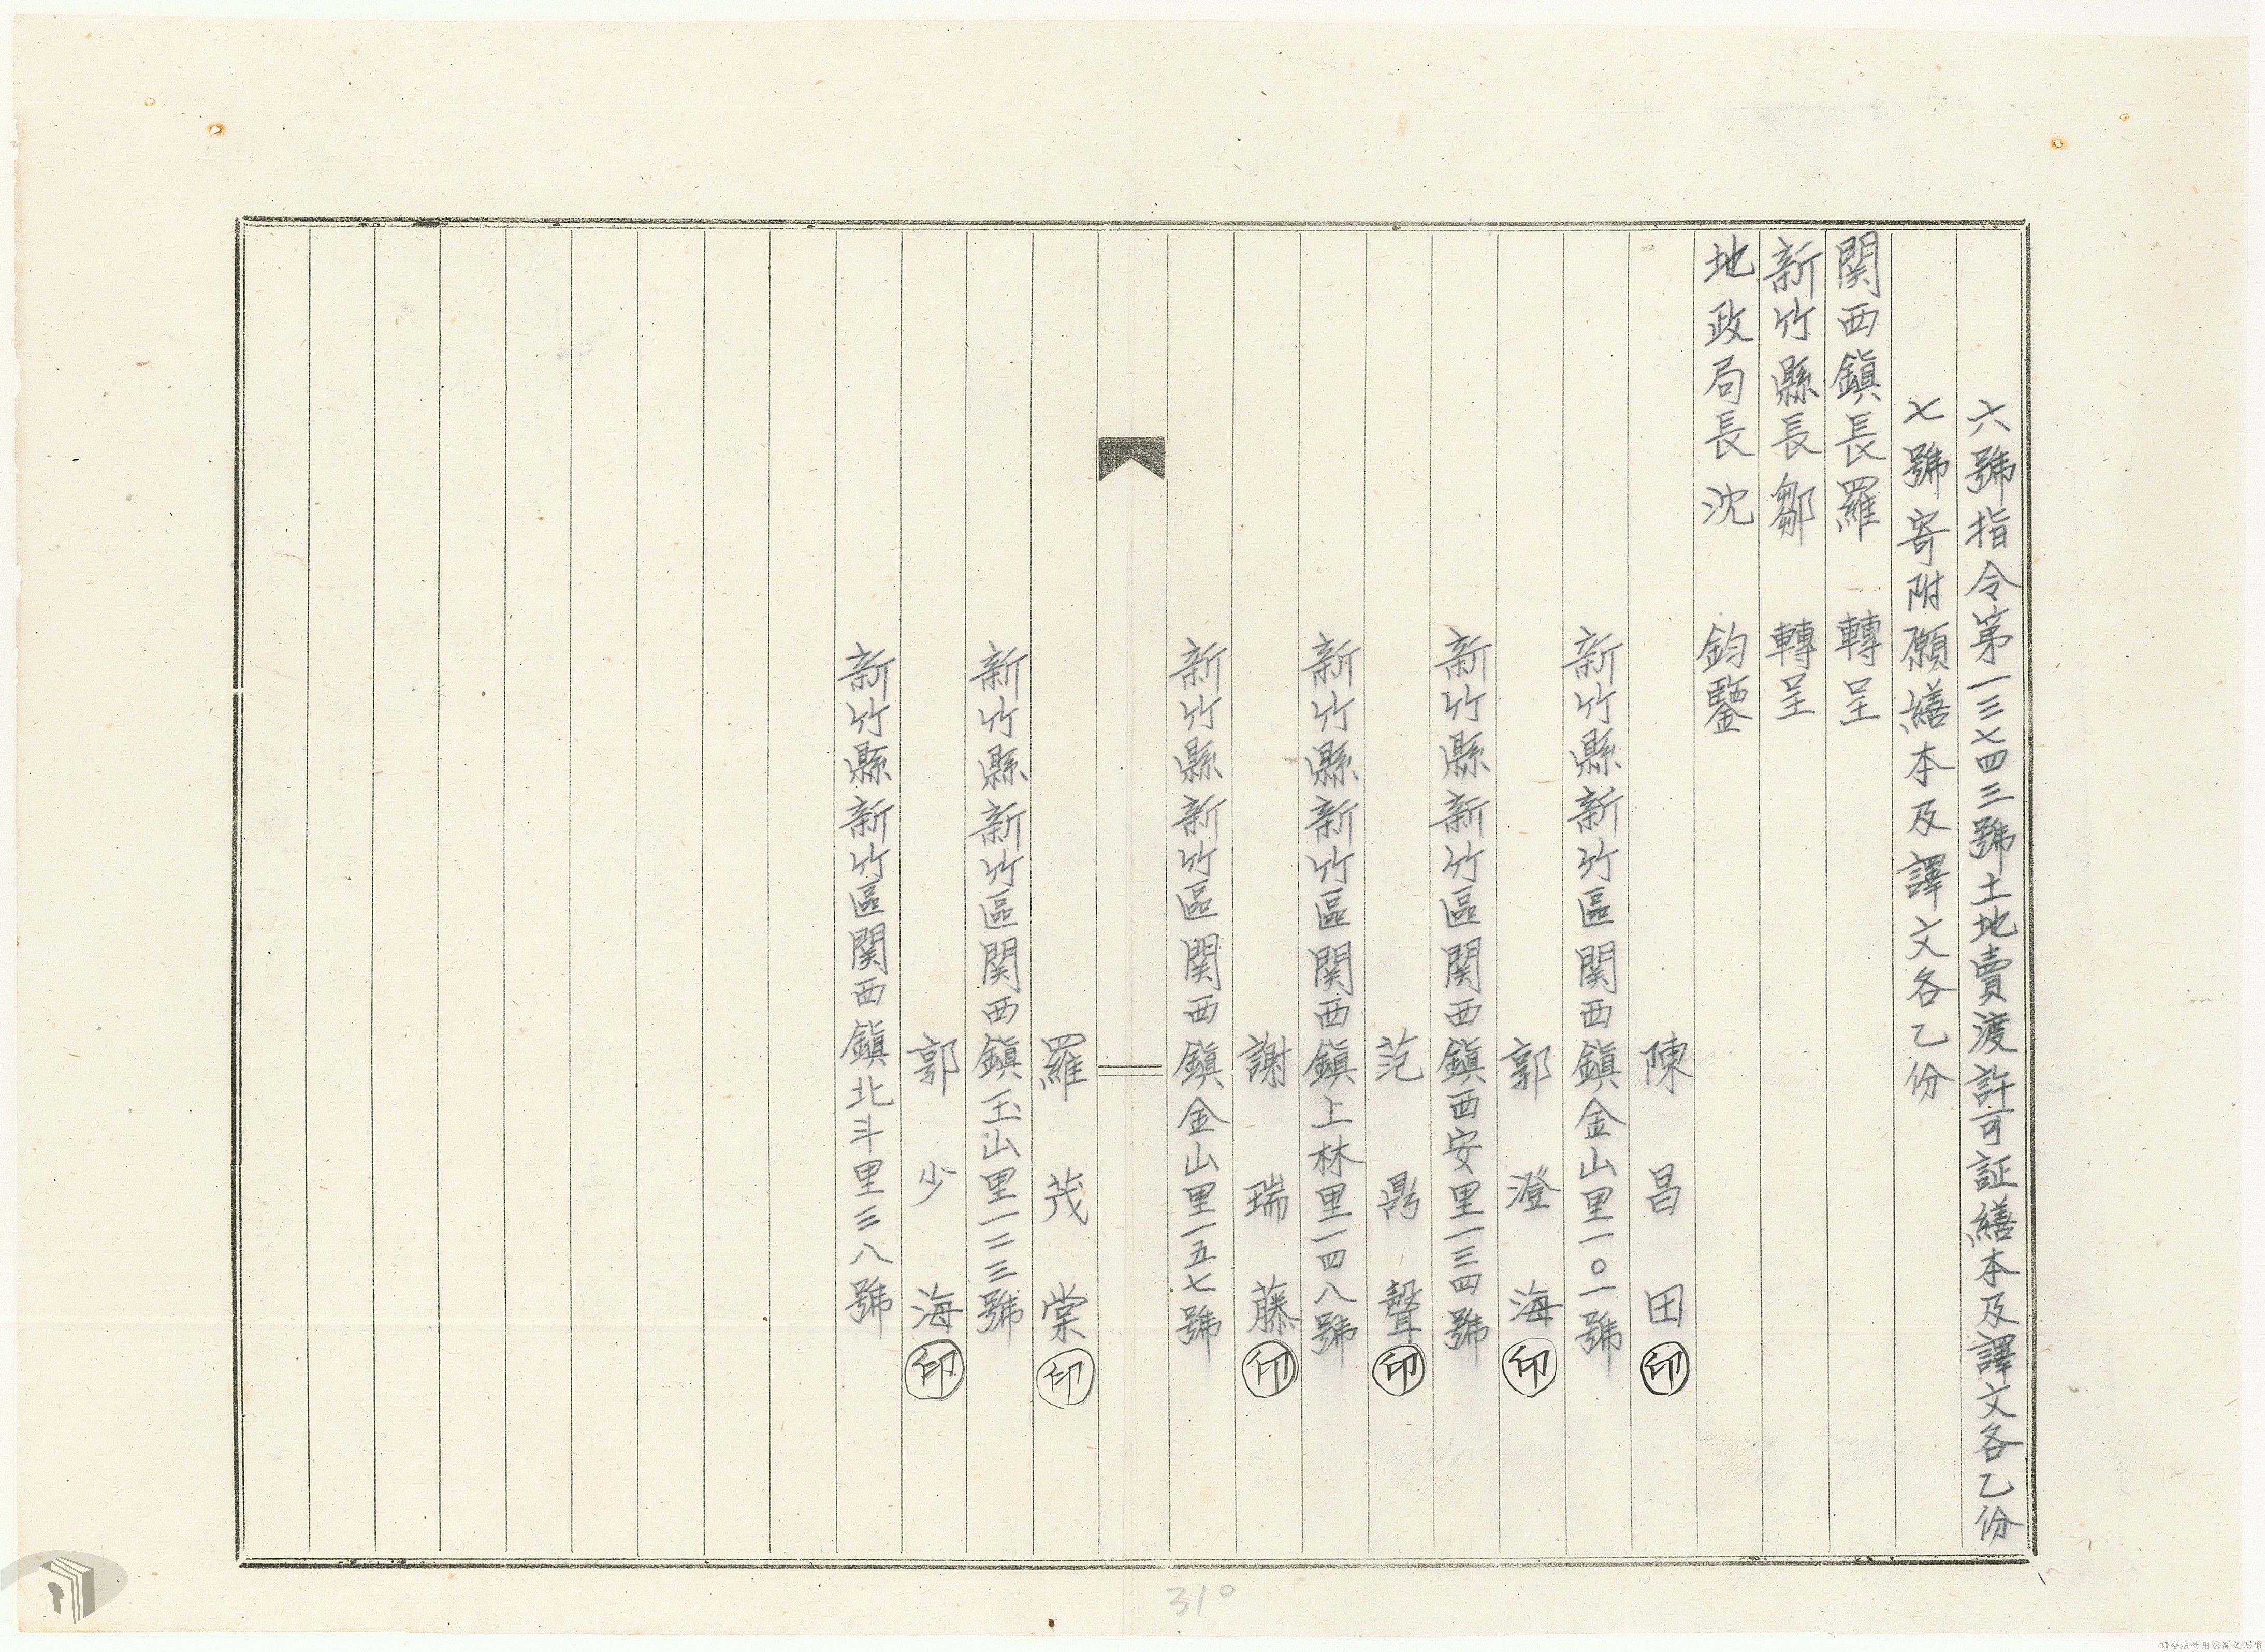 六號指令第一三七四三號土地賣渡許可証繕本及譯文各乙份
七號寄附願繕本及譯文各乙份
関西鎮長羅　轉呈
新竹縣長鄒　轉呈
地政局長沈　鈞鑒
陳昌田㊞
新竹縣新竹區関西鎮金山里一〇一號
郭澄海㊞
新竹縣新竹區関西鎮西安里一三四號
范鼎聲㊞
新竹縣新竹區関西鎮上林里一四八號
謝瑞藤㊞
新竹縣新竹區関西鎮金山里一五七號
羅茂棠㊞
新竹縣新竹區関西鎮玉山里一二三號
郭少海㊞
新竹縣新竹區関西鎮北斗里三八號
310
請合法使用公開之影像